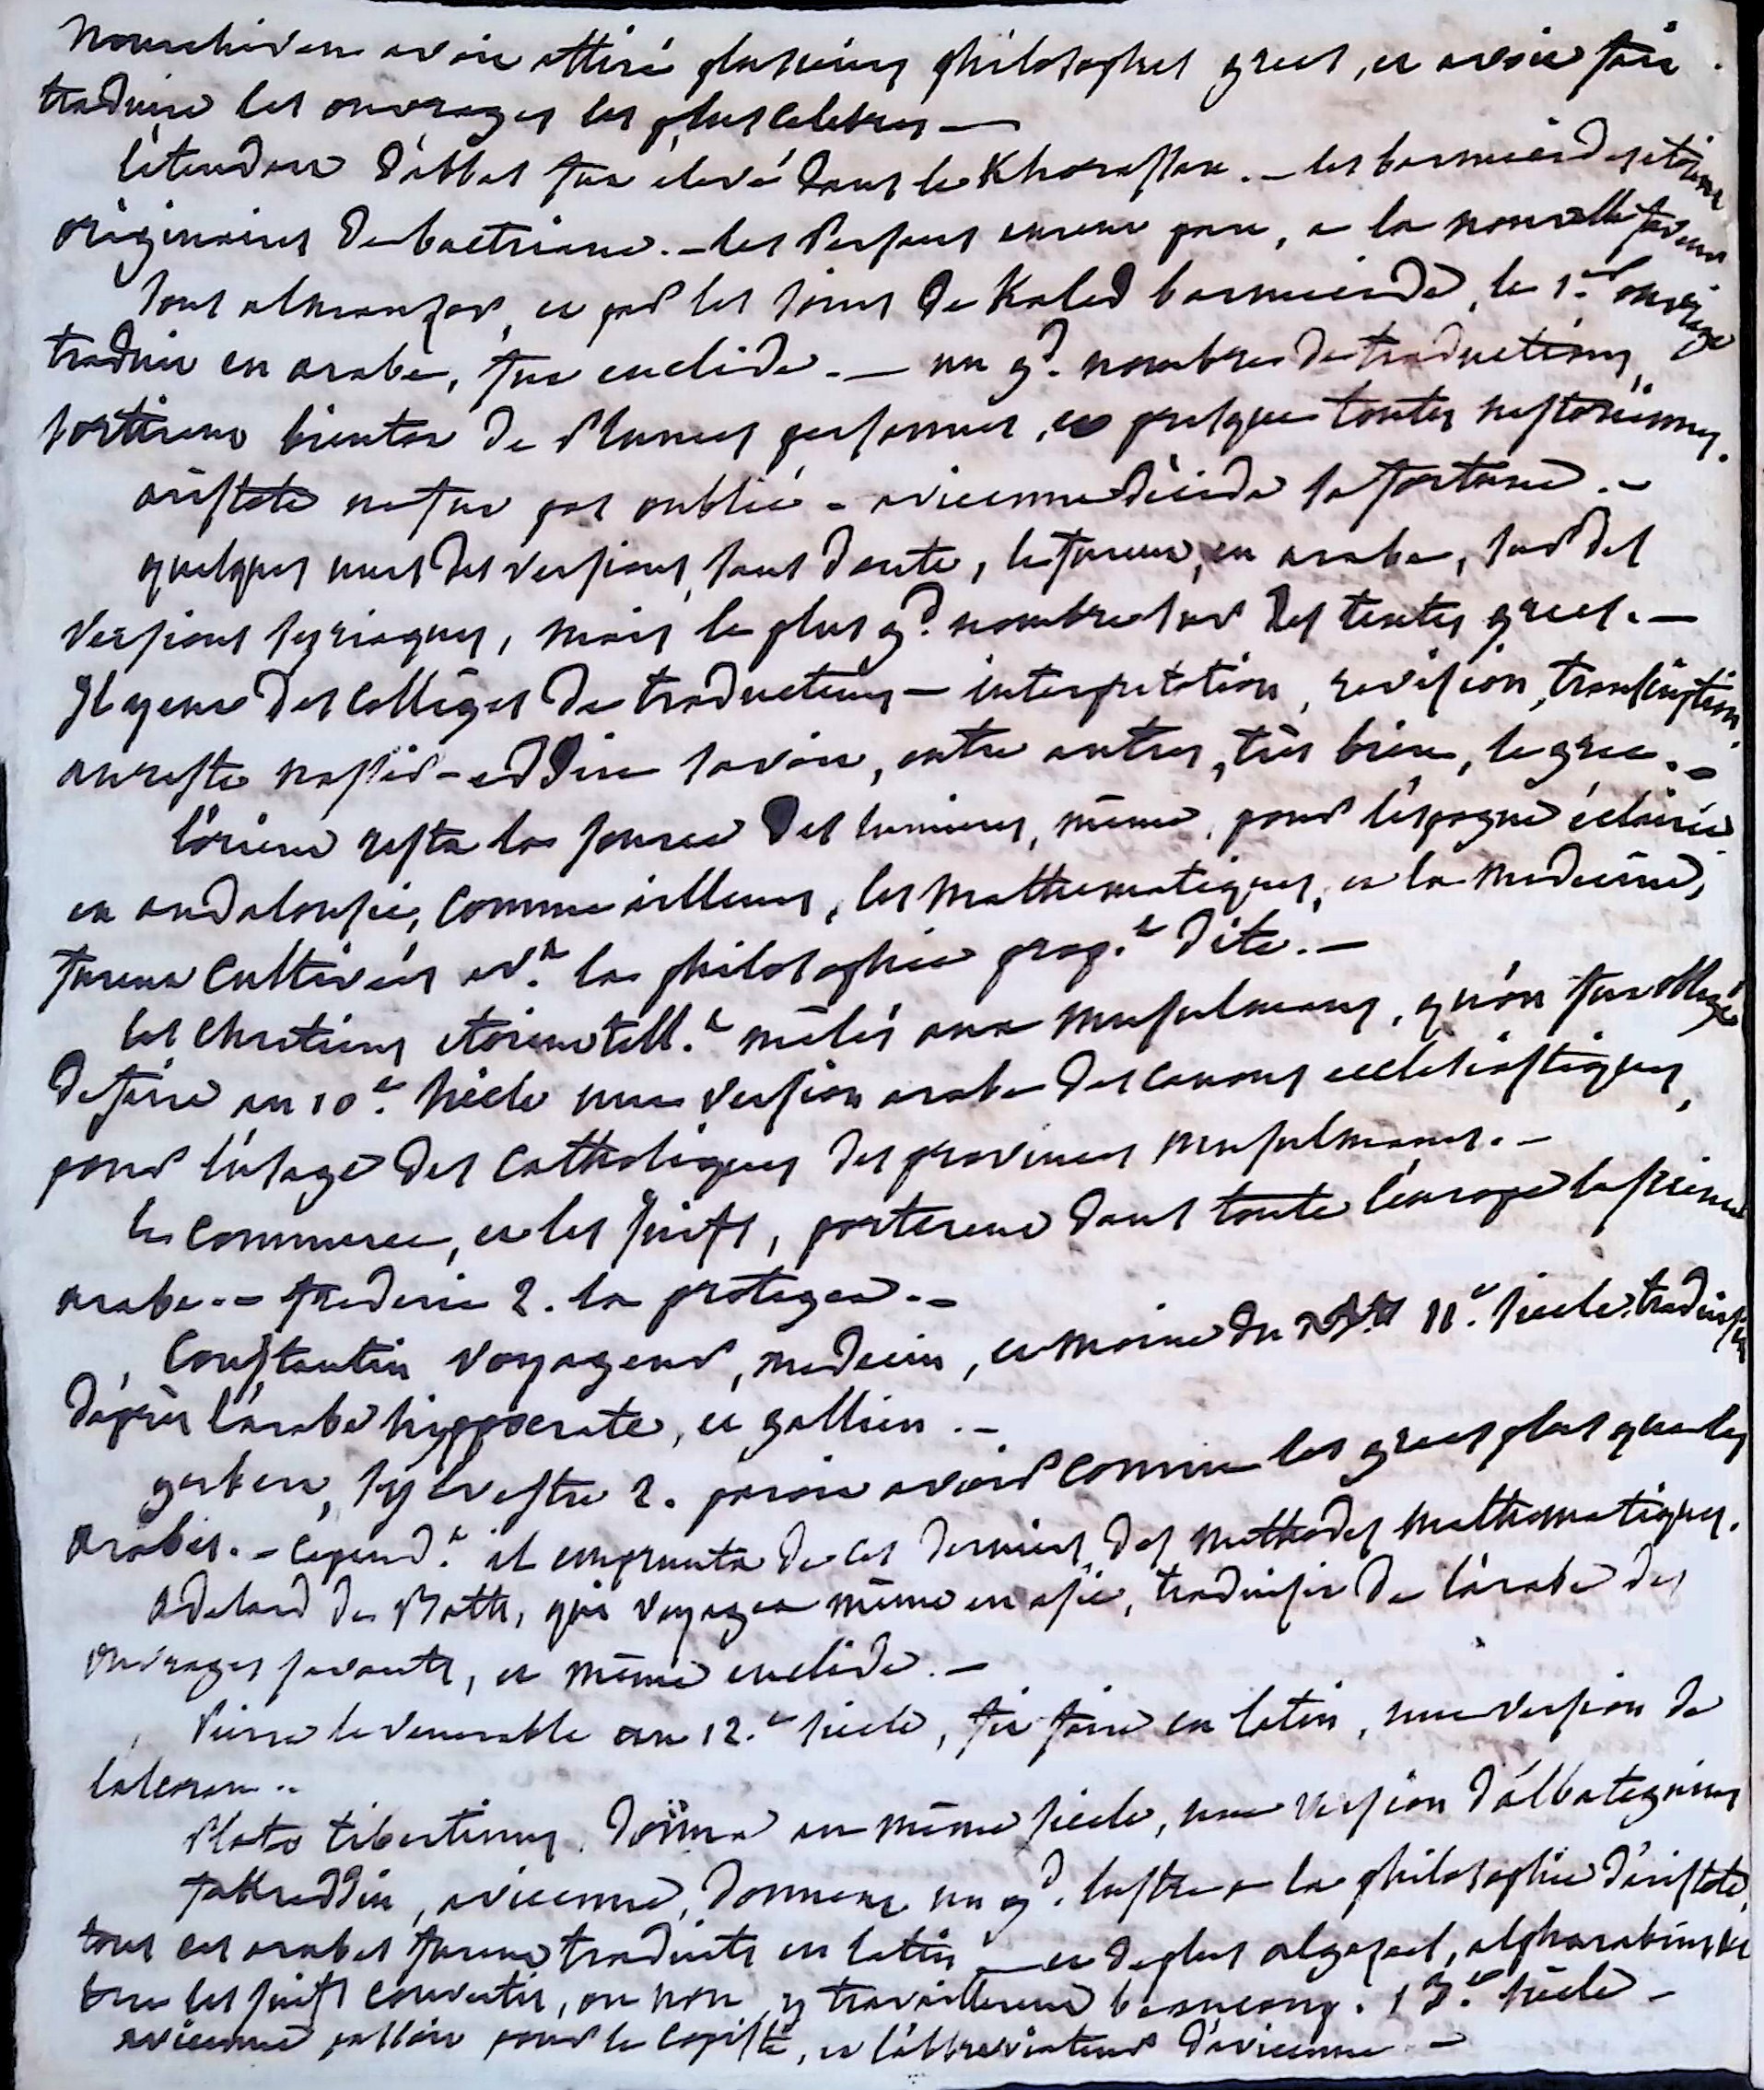 Nourschirvan avoit attiré plusieurs philosophes grecs, et avoit fait
traduire les ouvrages les plus celebres —
l'étendart d'abbas fut élevé dans le Khorassan. – les barmécides étoient
originaires de bactriane. – les Persans eurent part, a la nouvelle faveur
sous almanzor, et par les soins de Kaled barmecide, le 1.er ouvrage
traduit en arabe, fut euclide. – un gd. nombre de traductions,
sortirent bientot de plumes persannes, et presque toutes nestoriennes.
aristote ne fut pas oublié – avicenne décida sa fortune. –
quelques unes des versions, sans doute, se firent, en arabe, sur des
versions syriaques, mais le plus gd. nombre sur des textes grecs. –
Il y eut des collèges de traducteurs – interpretation, revision, transcription.
au reste nassir-eddin savoit, entre autres, très bien, le grec. –
l'orient resta la source des lumieres, même, pour l'espagne éclairée
en andalousie, comme ailleurs, les mathematiques, et la medecine,
furent cultivées avt. la philosophie prop.t dite. –
les chretiens etoient tellt. mêlés aux musulmans, qu'on fut obligé
de faire au 10.e siècle une version arabe des canons ecclesiastiques,
pour l'usage des catholiques des provinces musulmanes. –
le commerce, et les juifs, porterent dans toute l'europe la science
arabe. – frederic 2. la protegea. –
Constantin voyageur, medecin, et moine du 11.e siecle, traduisit
d'après l'arabe hyppocrate, et gallien. –
gerbert, sylvestre 2. paroit avoir connu les grecs plus que les
arabes. – cepend.t il emprunta de ces derniers, des methodes mathematiques.
Adelard de Bath, qui voyagea même en asie, traduisit de l'arabe des
ouvrages savants, et même euclide. –
Pierre le venerable au 12.e siecle, fit faire en latin, une version de
l'alcoran..
Plato tiburtinus donna au même siecle, une version d'albategnius
fakreddin, avicenne, donnent un gd. lustre a la philosophie d'aristote,
tous ces arabes furent traduits en latin — et de plus algazel, alpharabius
les juifs convertis, ou non y travaillerent beaucoup. 13.e siècle –
avicenne passoit pour le copiste, et l'abbreviateur d'avicenne –